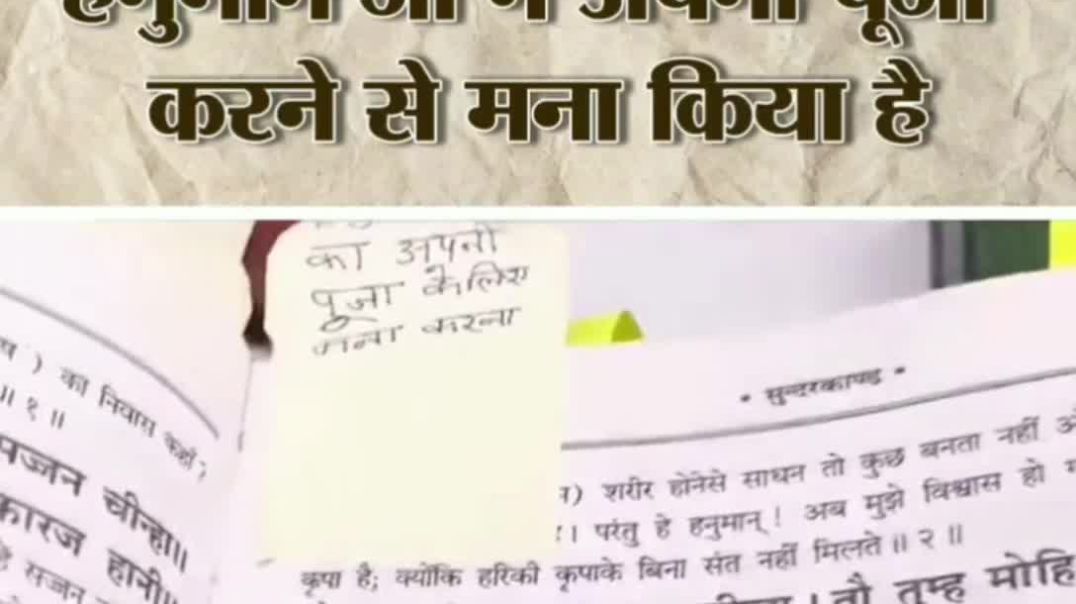 हनुमान जी ने अपनी पूजा
करने से मना किया है
का अपनी
पूजा के लिए
मना करना
• सुन्दरकाण्ड •
) का निवास कहाँ ?
॥ १ ॥
सज्जन चीन्हा॥
कारज हानी॥
सज्जन
) शरीर होनेसे साधन तो कुछ बनता नहीं
। परंतु हे हनुमान् ! अब मुझे विश्वास हो
कृपा है; क्योंकि हरिकी कृपाके बिना संत नहीं मिलते॥ २ ॥
। तौ तुम्ह मोहि